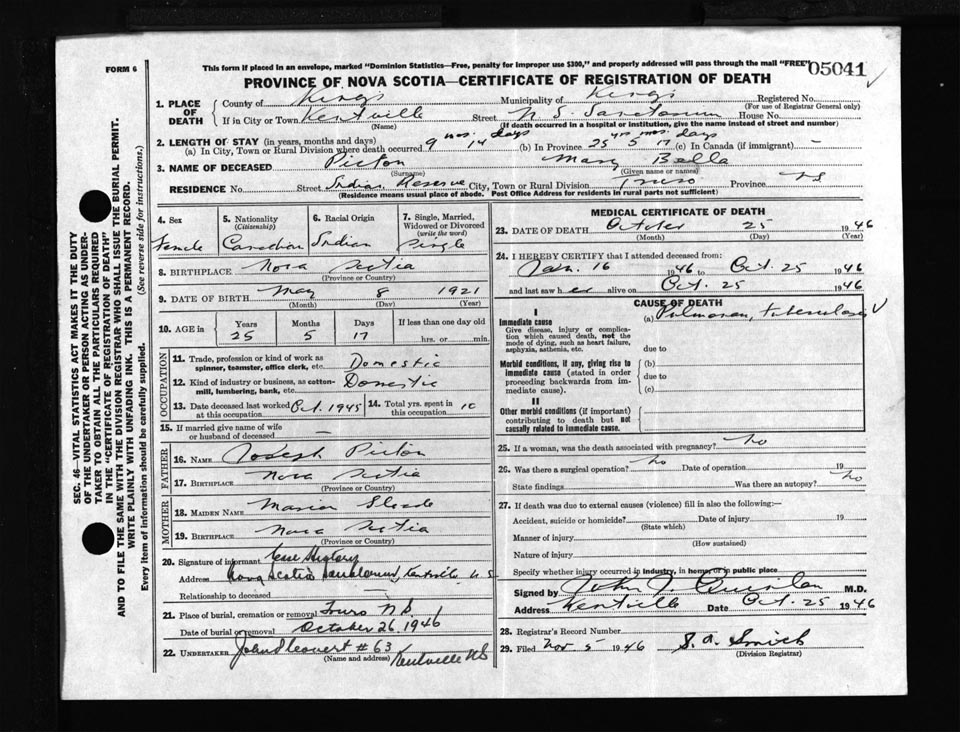 FORM 6
This form if placed in an envelope, marked "Dominion Statistics—Free, penalty for improper use $300," and properly addressed will pass through the mail "FREE"
05041
PROVINCE OF NOVA SCOTIA—CERTIFICATE OF REGISTRATION OF DEATH
1. PLACE OF DEATH
County of Kings Municipality of Kings Registered No.
(For use of Registrar General only)
If in City or Town Kentville Street N S Sanatorium House No.
(Name) (If death occurred in a hospital or institution, give the name instead of street and number)
2. LENGTH OF STAY (in years, months and days) mos. days yrs mos. days
(a) In City, Town or Rural Division where death occurred 9 14 (b) In Province 25 5 17 (c) In Canada (if immigrant) —
3. NAME OF DECEASED Picton Mary Bella
(Surname) (Given name or names)
RESIDENCE No. Street Indian Reserve City, Town or Rural Division Truro Province NS
(Residence means usual place of abode. Post Office Address for residents in rural parts not sufficient)
4. Sex Female
5. Nationality (Citizenship) Canadian
6. Racial Origin Indian
7. Single, Married, Widowed or Divorced (write the word) Single
8. BIRTHPLACE Nova Scotia
(Province or Country)
9. DATE OF BIRTH May 8 1921
(Month) (Day) (Year)
10. AGE in Years Months Days If less than one day old
25 5 17 hrs. or min.
OCCUPATION
11. Trade, profession or kind of work as spinner, teamster, office clerk, etc. Domestic
12. Kind of industry or business, as cotton-mill, lumbering, bank, etc. Domestic
13. Date deceased last worked at this occupation Oct. 1945
14. Total yrs. spent in this occupation 10
15. If married give name of wife or husband of deceased —
FATHER
16. NAME Joseph Picton
17. BIRTHPLACE Nova Scotia
(Province or Country)
MOTHER
18. MAIDEN NAME
19. BIRTHPLACE Nova Scotia
(Province or Country)
20. Signature of informant
Address Nova Scotia Sanatorium, Kentville N. S
Relationship to deceased
21. Place of burial, cremation or removal Truro N.S.
Date of burial or removal October 26, 1946
22. UNDERTAKER # 63 Kentville NS
(Name and address)
MEDICAL CERTIFICATE OF DEATH
23. DATE OF DEATH October 25 1946
(Month) (Day) (Year)
24. I HEREBY CERTIFY that I attended deceased from:
Jan. 16 1946 to Oct. 25 1946
and last saw her alive on Oct. 25 1946
CAUSE OF DEATH
I
Immediate cause (a) Pulmonary tuberculosis
Give disease, injury or complication which caused death, not the mode of dying, such as heart failure, asphyxia, asthenia, etc.
due to
Morbid conditions, if any, giving rise to immediate cause (stated in order proceeding backwards from immediate cause).
(b)
due to
(c)
II
Other morbid conditions (if important) contributing to death but not causally related to immediate cause.
25. If a woman, was the death associated with pregnancy? No
26. Was there a surgical operation? No Date of operation 19
State findings Was there an autopsy? No
27. If death was due to external causes (violence) fill in also the following:—
Accident, suicide or homicide? Date of injury 19
(State which)
Manner of injury
(How sustained)
Nature of injury
Specify whether injury occurred in industry, in home or in public place
Signed by John J Quinlan M.D.
Address Kentville Date Oct. 25 1946
28. Registrar's Record Number
29. Filed Nov 5 1946 S. A. Smith
(Division Registrar)
SEC. 46—VITAL STATISTICS ACT MAKES IT THE DUTY
OF THE UNDERTAKER OR PERSON ACTING AS UNDER-
TAKER TO OBTAIN ALL THE PARTICULARS REQUIRED
IN THE "CERTIFICATE OF REGISTRATION OF DEATH"
AND TO FILE THE SAME WITH THE DIVISION REGISTRAR WHO SHALL ISSUE THE BURIAL PERMIT.
WRITE PLAINLY WITH UNFADING INK. THIS IS A PERMANENT RECORD.
Every item of information should be carefully supplied. (See reverse side for instructions.)